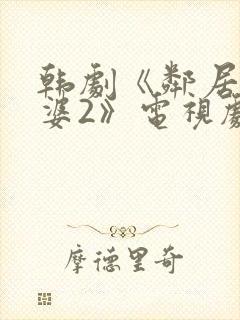 韩劇《鄰居
婆2》電視劇
摩德里奇